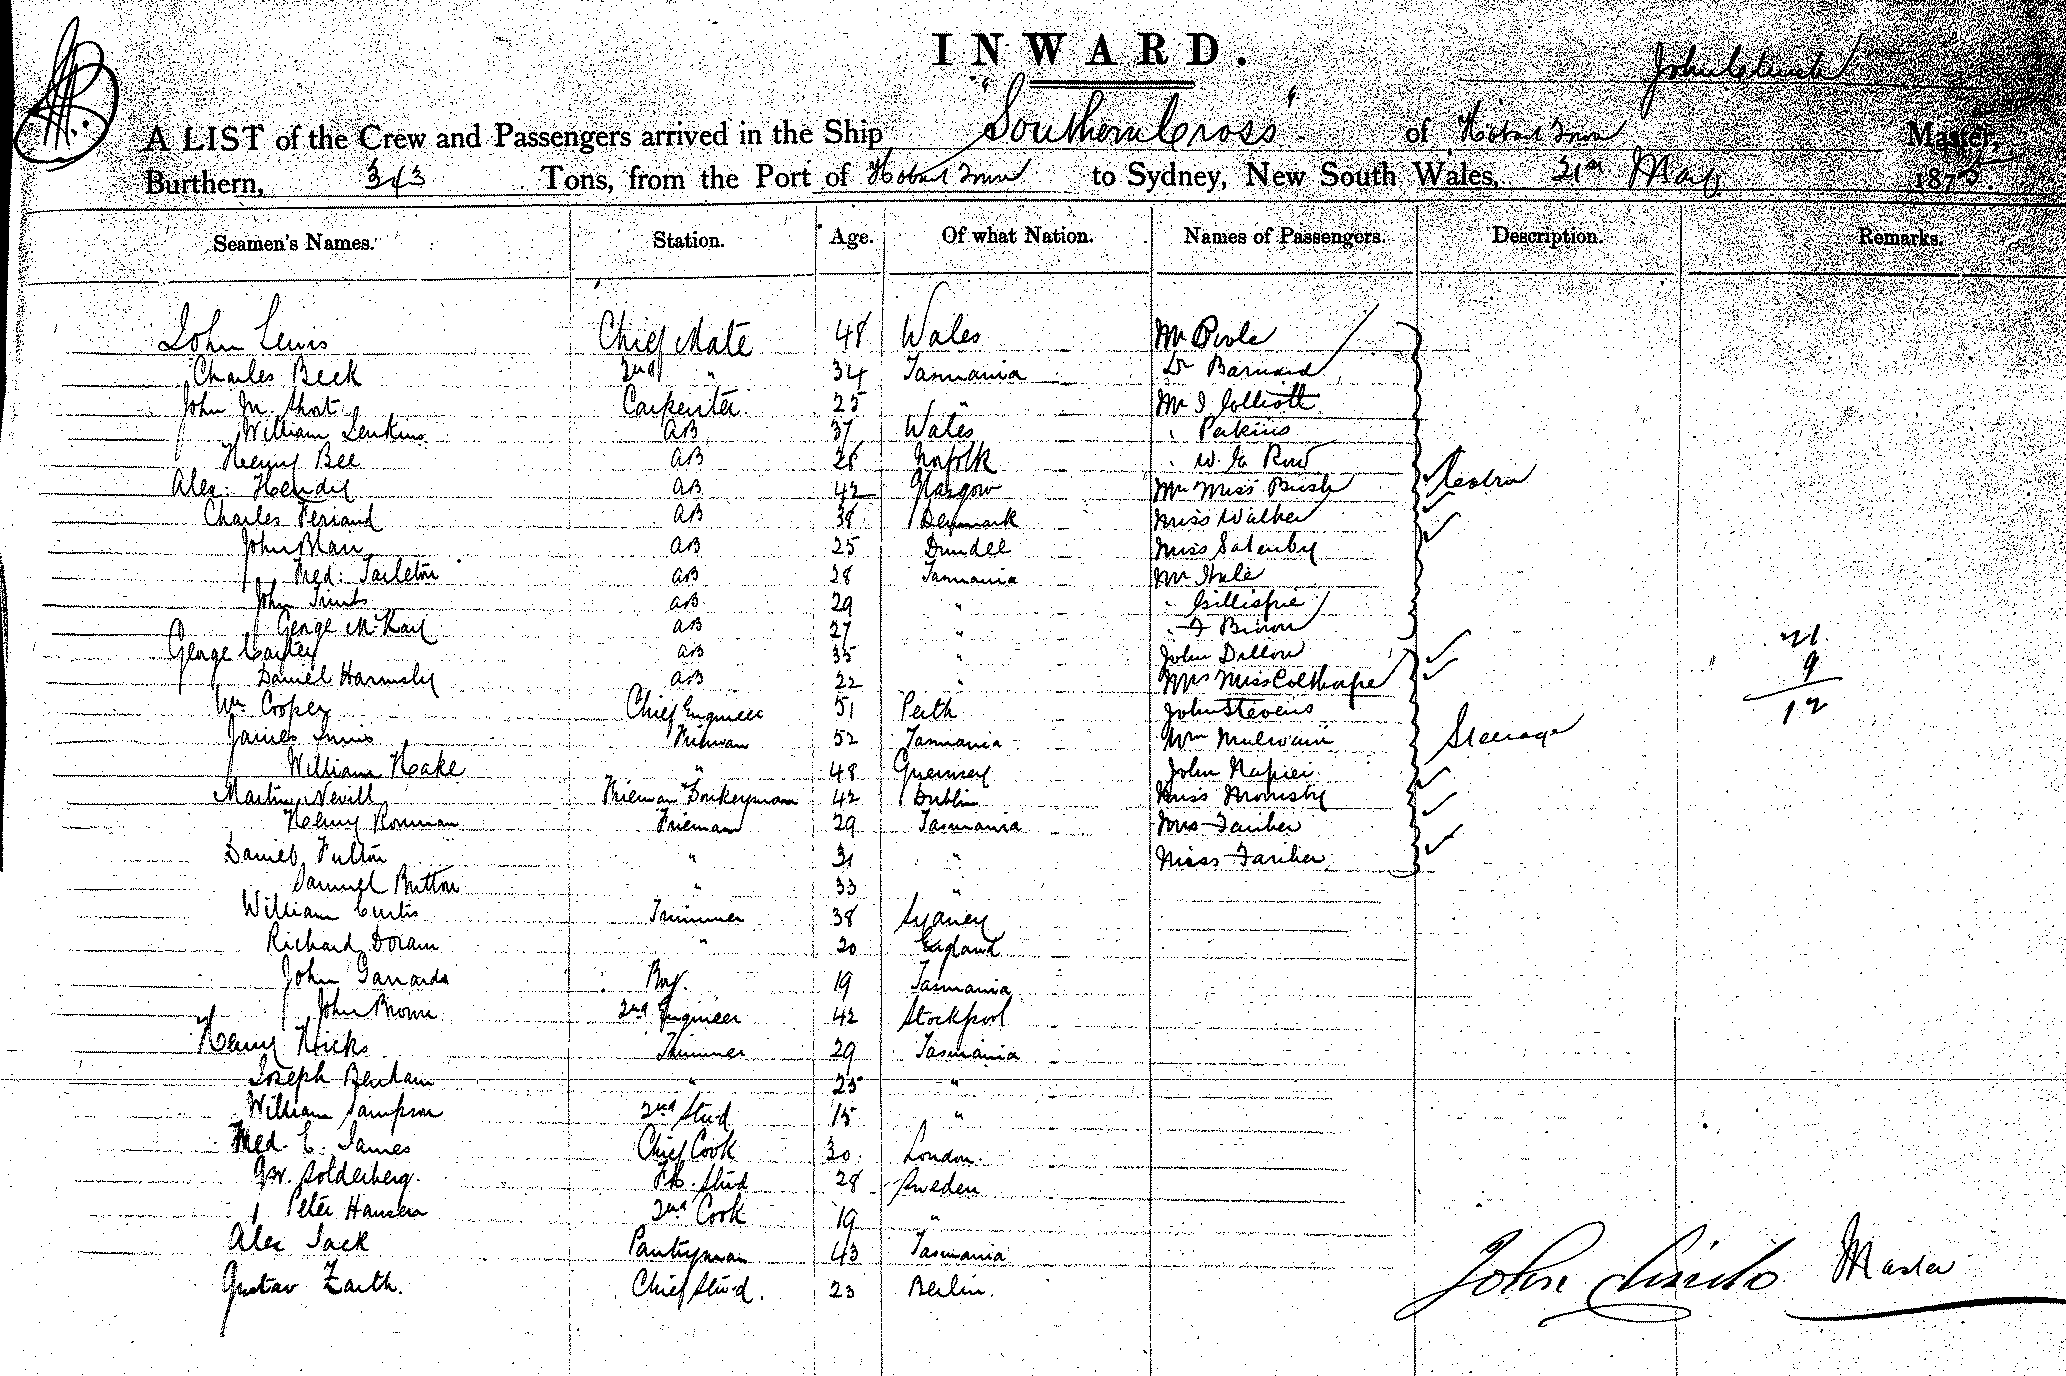 INWARD.
John Clinch
A LIST of the Crew and Passengers arrived in the Ship "Southern Cross" of Hobart Town Master,
Burthern, 343 Tons, from the Port of Hobart Town to Sydney, New South Wales, 31st May 187
Seamen's Names. Station. Age. Of what Nation. Names of Passengers. Description. Remarks.
John Lewis Chief Mate 48 Wales Mr Poole
Charles Beck 2nd " 34 Tasmania Dr Barnard
John M. Short Carpenter 25 " Mr J Colliott
William Jenkins AB 37 Wales " Perkins
Henry Bee AB 26 Norfolk " W. G. Row
Alex. Hendy AB 42 Glasgow Mr Miss Bush Cabin
Charles AB 38 Denmark Miss Walker
John Blair AB 25 Dundee Miss
Fred. Tarleton AB 28 Tasmania Mr Hale
John AB 29 " " Gillispie
George McKay AB 27 "
George Carter AB 35 " John Dillon
Daniel Harmsby AB 22 " Mrs Miss Colthorpe
Wm Cooper Chief Engineer 51 Perth John Stevens
James Innis Fireman 52 Tasmania Wm Mulwain Steerage
William Hake " 48 Guernsey John Napier
Martin Nevill Fireman Donkeyman 42 Dublin Miss
Henry Fireman 29 Tasmania Mrs
Daniel Fulton " 31 " Miss
Samuel Button " 33 "
William Curtis Trimmer 38 Sydney
Richard Doram " 20 England
John Garrards Boy. 19 Tasmania
John Brown 2nd Engineer 42 Stockpool
Henry Hicks Trimmer 29 Tasmania
Joseph Benham " 25 "
William Sampson 2nd Stud 15 "
Fred. C. James Chief Cook 30 London.
Solderberg. Stud 28 Sweden
Peter Hansen 2nd Cook 19 "
Alex Jack Pantryman 43 Tasmania
Gustav Zarth. Chief Stu-d. 23 Berlin.
21
9
12
John Clinch Master